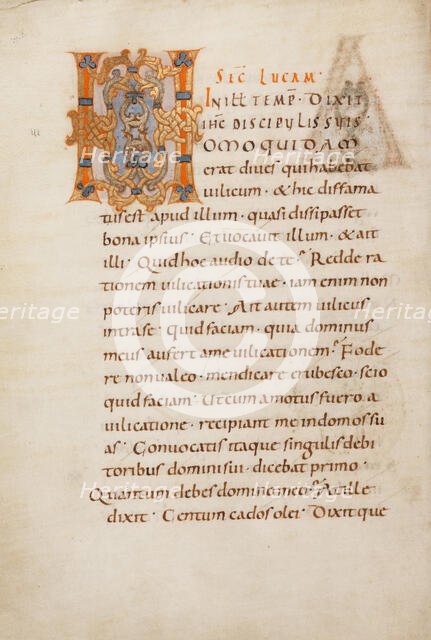 SEC LUCAM·
IN ILL TEMP· DIXIT
IHC DISCIPULIS SUIS
HOMO QUIDAM
erat dives qui habebat
uilicum · & hic diffama
tus est apud illum · quasi dissipasset
bona ipsius · Et uocauit illum · & ait
illi · Quid hoc audio de te · Redde ra
tionem uilicationis tuae · iam enim non
poteris uilicare · Ait autem uilicus
intra se · quid faciam · quia dominus
meus aufert a me uilicationem · Fode
re non ualeo · mendicare erubesco · scio
quid faciam · Ut cum amotus fuero a
uilicatione · recipiant me in domos su
as · Conuocatis itaque singulis debi
toribus domini sui · dicebat primo ·
Quantum debes domino meo · At ille
dixit · Centum cados olei · Dixit que
Heritage